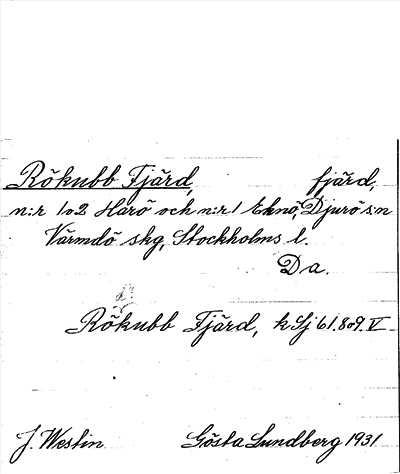 Rökubb Fjärd, fjärd,
n:r 1o2 Harö och n:r 1 Eknö, Djurö s:n
Värmdö skg, Stockholms l.
Da.
Rökubb Fjärd, k Sj 61.8o9. V
J. Westin Gösta Lundberg 1931